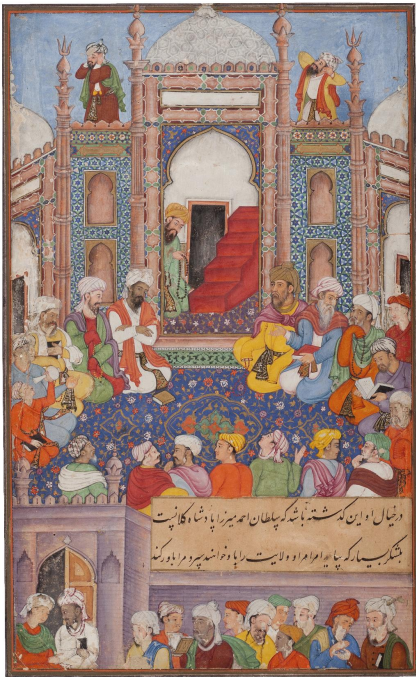 در خیال او این گذشته باشد که سلطان احمد میرزا پادشاه کلانیست
لشکر بسیار که بیاید امرا او ولایت را باو خوانند سپرد مرا باور کند